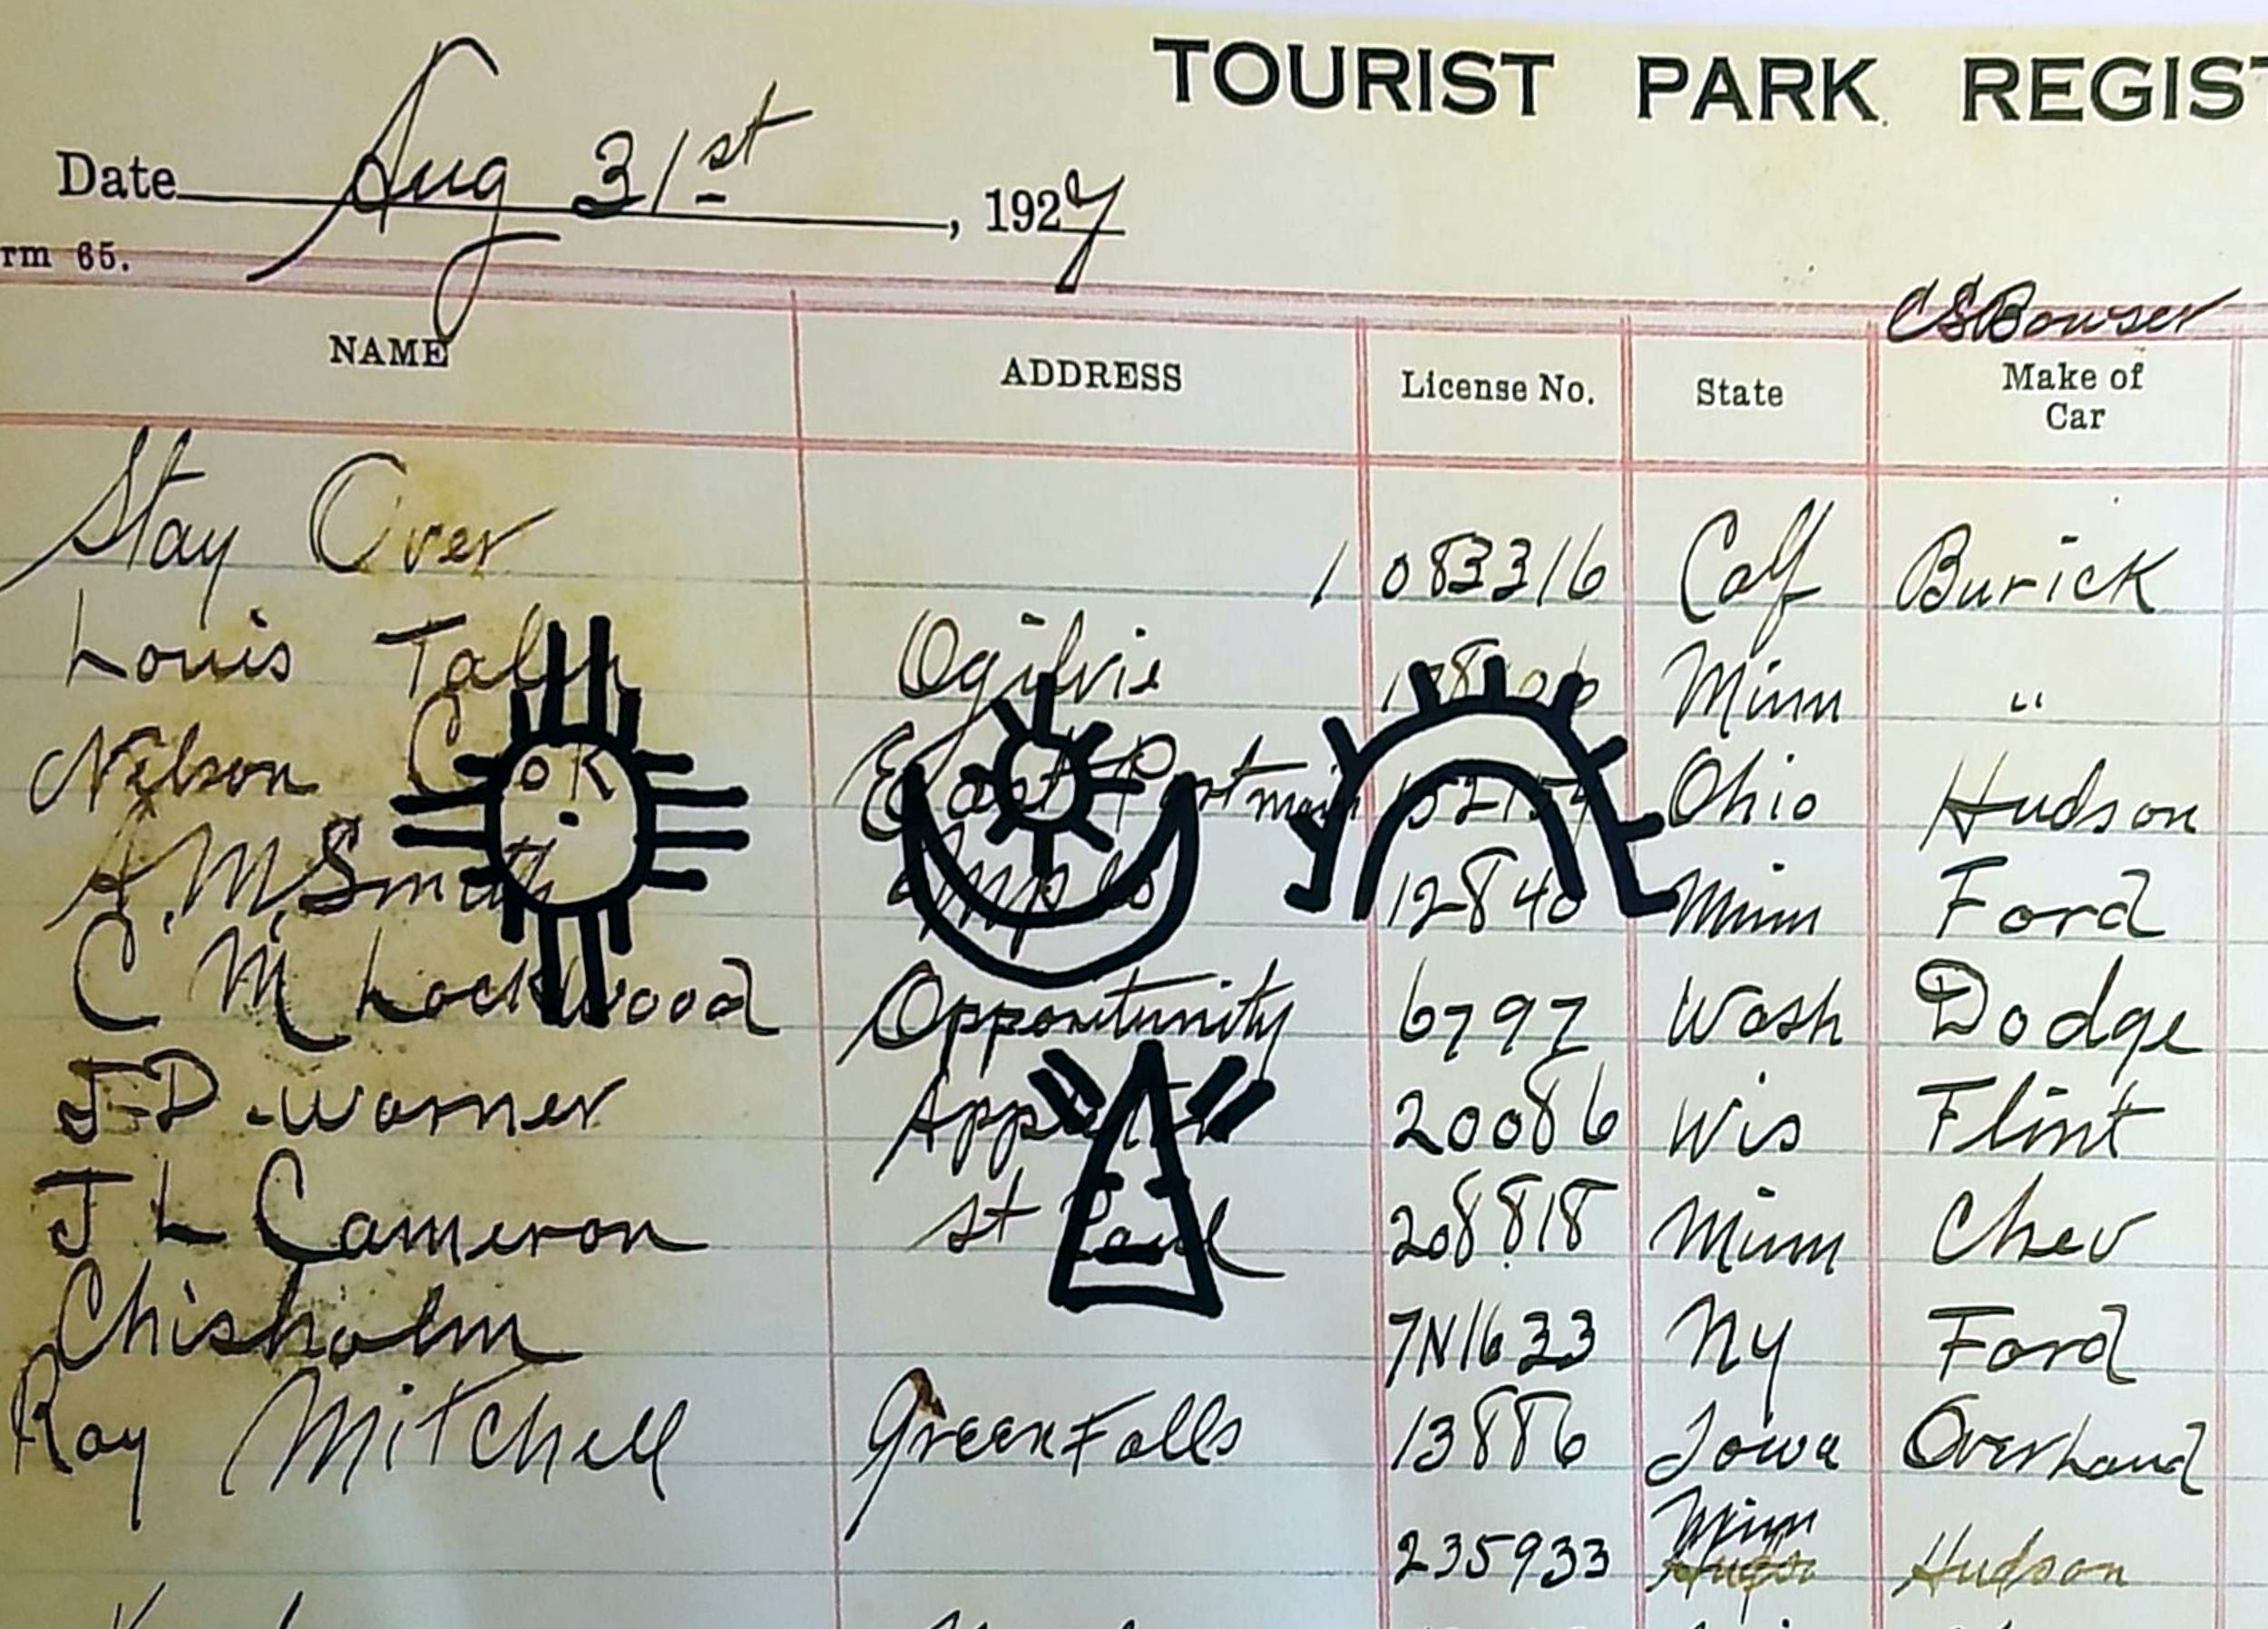 TOURIST PARK REGIST
Date Aug 31st, 1927
rm 65.
CSBowser
NAME ADDRESS License No. State Make of Car
Stay Over 1 083316 Calf Burick
Louis Ogilvie Minn "
Nelson East Ohio Hudson
OK
A.M. Smith 12840 Minn Ford
C M Lockwood Opportunity 6797 Wash Dodge
J-D-Warner 20086 Wis Flint
J L Cameron St Paul 208818 Minn Chev
Chisholm 7N1633 Ny Ford
Ray Mitchell Green Falls 13886 Iowa Overland
235933 Minn Hudson